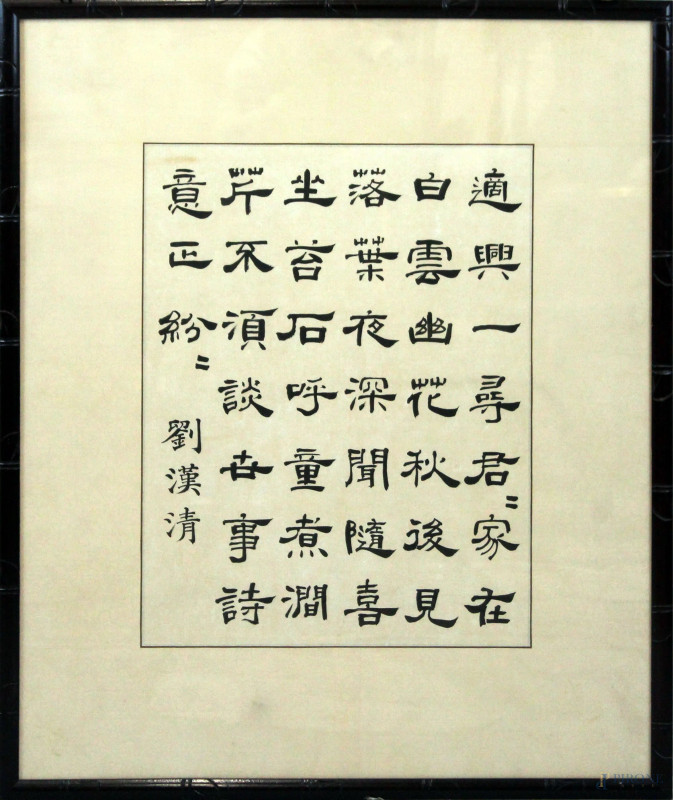 適興一尋君〻家在
白雲幽花秋後見
落葉夜深聞隨喜
坐苔石呼童煮澗
芹不須談世事詩
意正紛〻
劉漢清